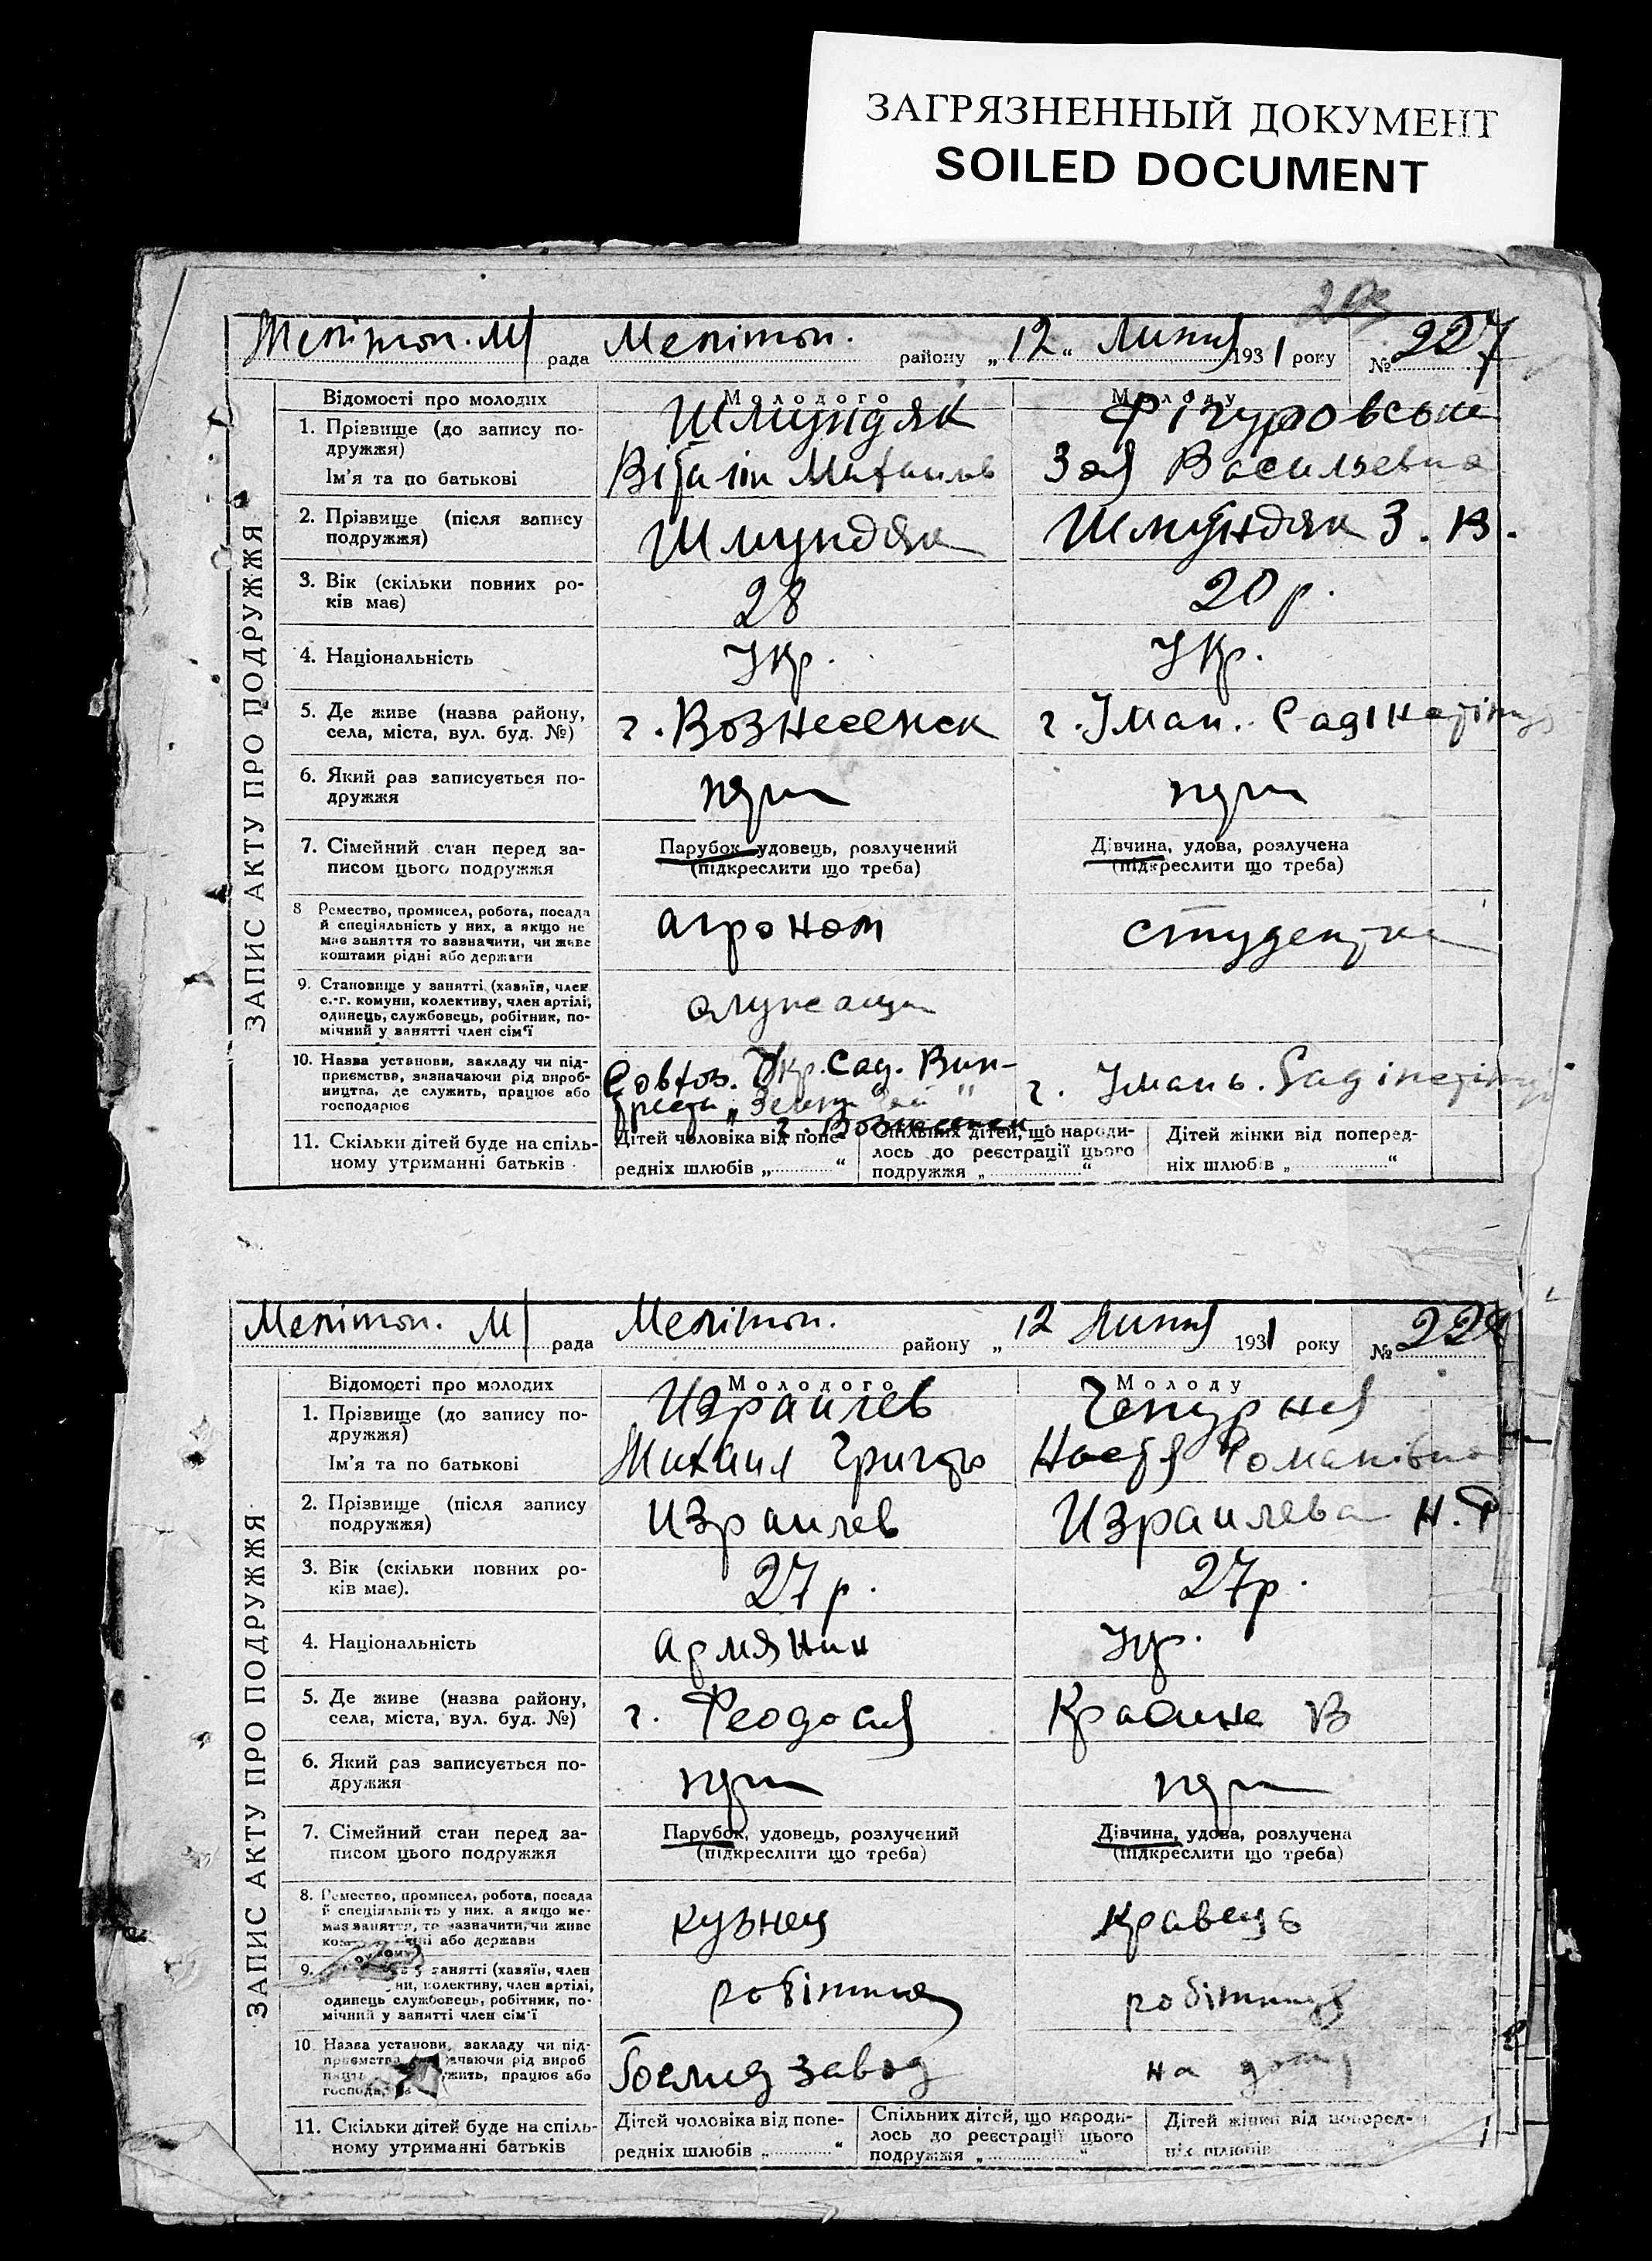 ЗАГРЯЗНЕННЫЙ ДОКУМЕНТ
SOILED DOCUMENT
Мелітоп. М/ рада Мелітоп. району „12“ Липня 1931 року № 227
ЗАПИС АКТУ ПРО ПОДРУЖЖЯ
Відомості про молодих Молодого Молоду
1. Прізвище (до запису по- Шмундяк Фігуровська
дружжя)
Ім'я та по батькові Віталін Михаилов Зая Васильевна
2. Прізвище (після запису Шмундяк Шмундяк З. В.
подружжя)
3. Вік (скільки повних ро- 28 20 р.
ків має)
4. Національність Укр. Укр.
5. Де живе (назва району, г. Вознесенск г. Уман.
села, міста, вул. буд. №)
6. Який раз записується по-
дружжя
7. Сімейний стан перед за- Парубок удовець, розлучений Дівчина, удова, розлучена
писом цього подружжя (підкреслити що треба) (підкреслити що треба)
8 Ремество, промисел, робота, посада агроном студентка
й спеціяльність у них, а якщо не
має заняття то зазначити, чи живе
коштами рідні або держави
9. Становище у занятті (хазяїн, член служащи
с.-г. комуни, колективу, член артілі,
одинець, службовець, робітник, по-
мічний у занятті член сім'ї
10. Назва установи, закладу чи під- Совхоз. Укр. Сад. Вин- г. Умань.
приємства, зазначаючи рід вироб- треста
ництва, де служить, працює або г. Вознесенск
господарює
11. Скільки дітей буде на спіль- Дітей чоловіка від попе- Спільних дітей, що народи- Дітей жінки від поперед-
ному утриманні батьків редніх шлюбів „ “ лось до реєстрації цього ніх шлюбів „ “
подружжя „ “
Мелітоп. М/ рада Мелітоп. району „ 12 Липня 1931 року № 228
ЗАПИС АКТУ ПРО ПОДРУЖЖЯ
Відомості про молодих Молодого Молоду
1. Прізвище (до запису по- Израилев Чепурная
дружжя)
Ім'я та по батькові Михаил Григор Настя Романівна
2. Прізвище (після запису Израилев Израилева Н. Р
подружжя)
3. Вік (скільки повних ро- 27 р. 27 р.
ків має).
4. Національність армянин Укр.
5. Де живе (назва району, г. Феодосия Красина
села, міста, вул. буд. №)
6. Який раз записується по-
дружжя
7. Сімейний стан перед за- Парубок, удовець, розлучений Дівчина, удова, розлучена
писом цього подружжя (підкреслити що треба) (підкреслити що треба)
8. Ремество, промисел, робота, посада кузнец кравець
й спеціяльність у них. а якщо не-
має заняття, то зазначити, чи живе
або держави
9. у занятті (хазяїн, член робітник робітниця
колективу, член артілі,
одинець службовець, робітник, по-
мічний у занятті член сім'ї
10 Назва установи, закладу чи під- завод на дому
приємства рід вироб
працює або
11. Скільки дітей буде на спіль- Дітей чоловіка від попе- Спільних дітей, що народи- Дітей жінки від поперед-
ному утриманні батьків редніх шлюбів „ “ лось до реєстрації цього ніх шлюбів
подружжя „ “